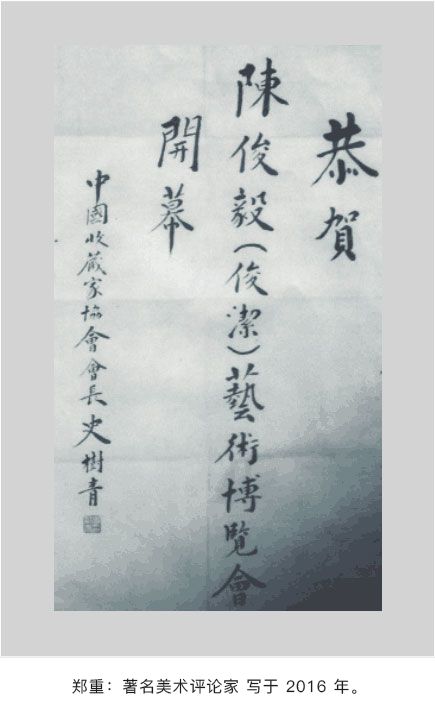 恭賀
陳俊毅(俊潔)藝術博覽會
開幕
中國收藏家協會會長史樹青
郑重：著名美术评论家 写于 2016 年。